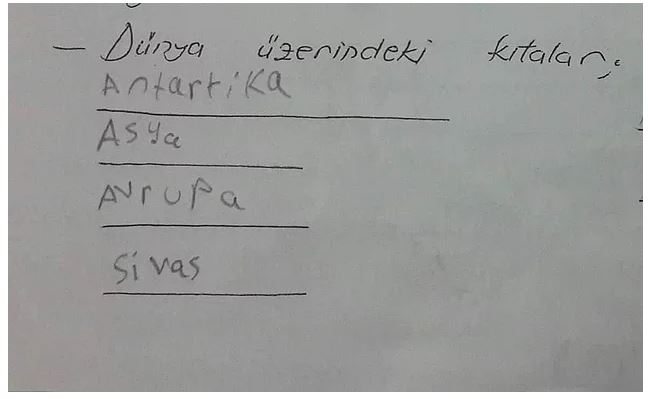 — Dünya üzerindeki kıtalar;
Antartika
Asya
Avrupa
Sivas